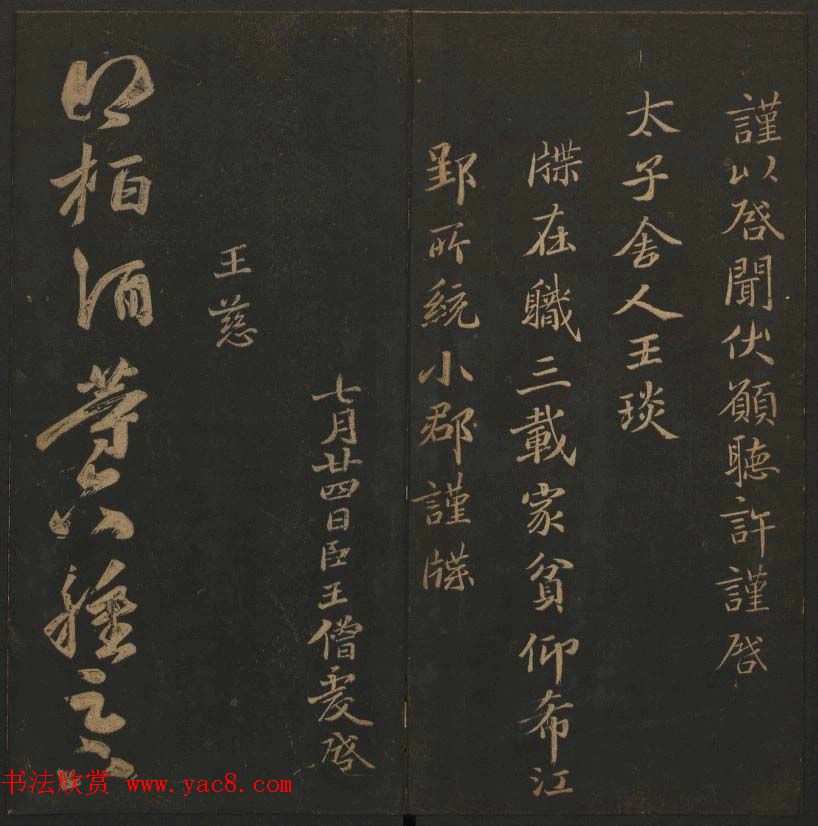 謹以啓聞伏願聴許謹啓
太子舎人王琰
牒在職三載家貧仰希江
郢所統小郡謹牒
七月廿四日臣王僧虔啓
王慈
栢酒等六種足下
书法欣赏 www.yac8.com